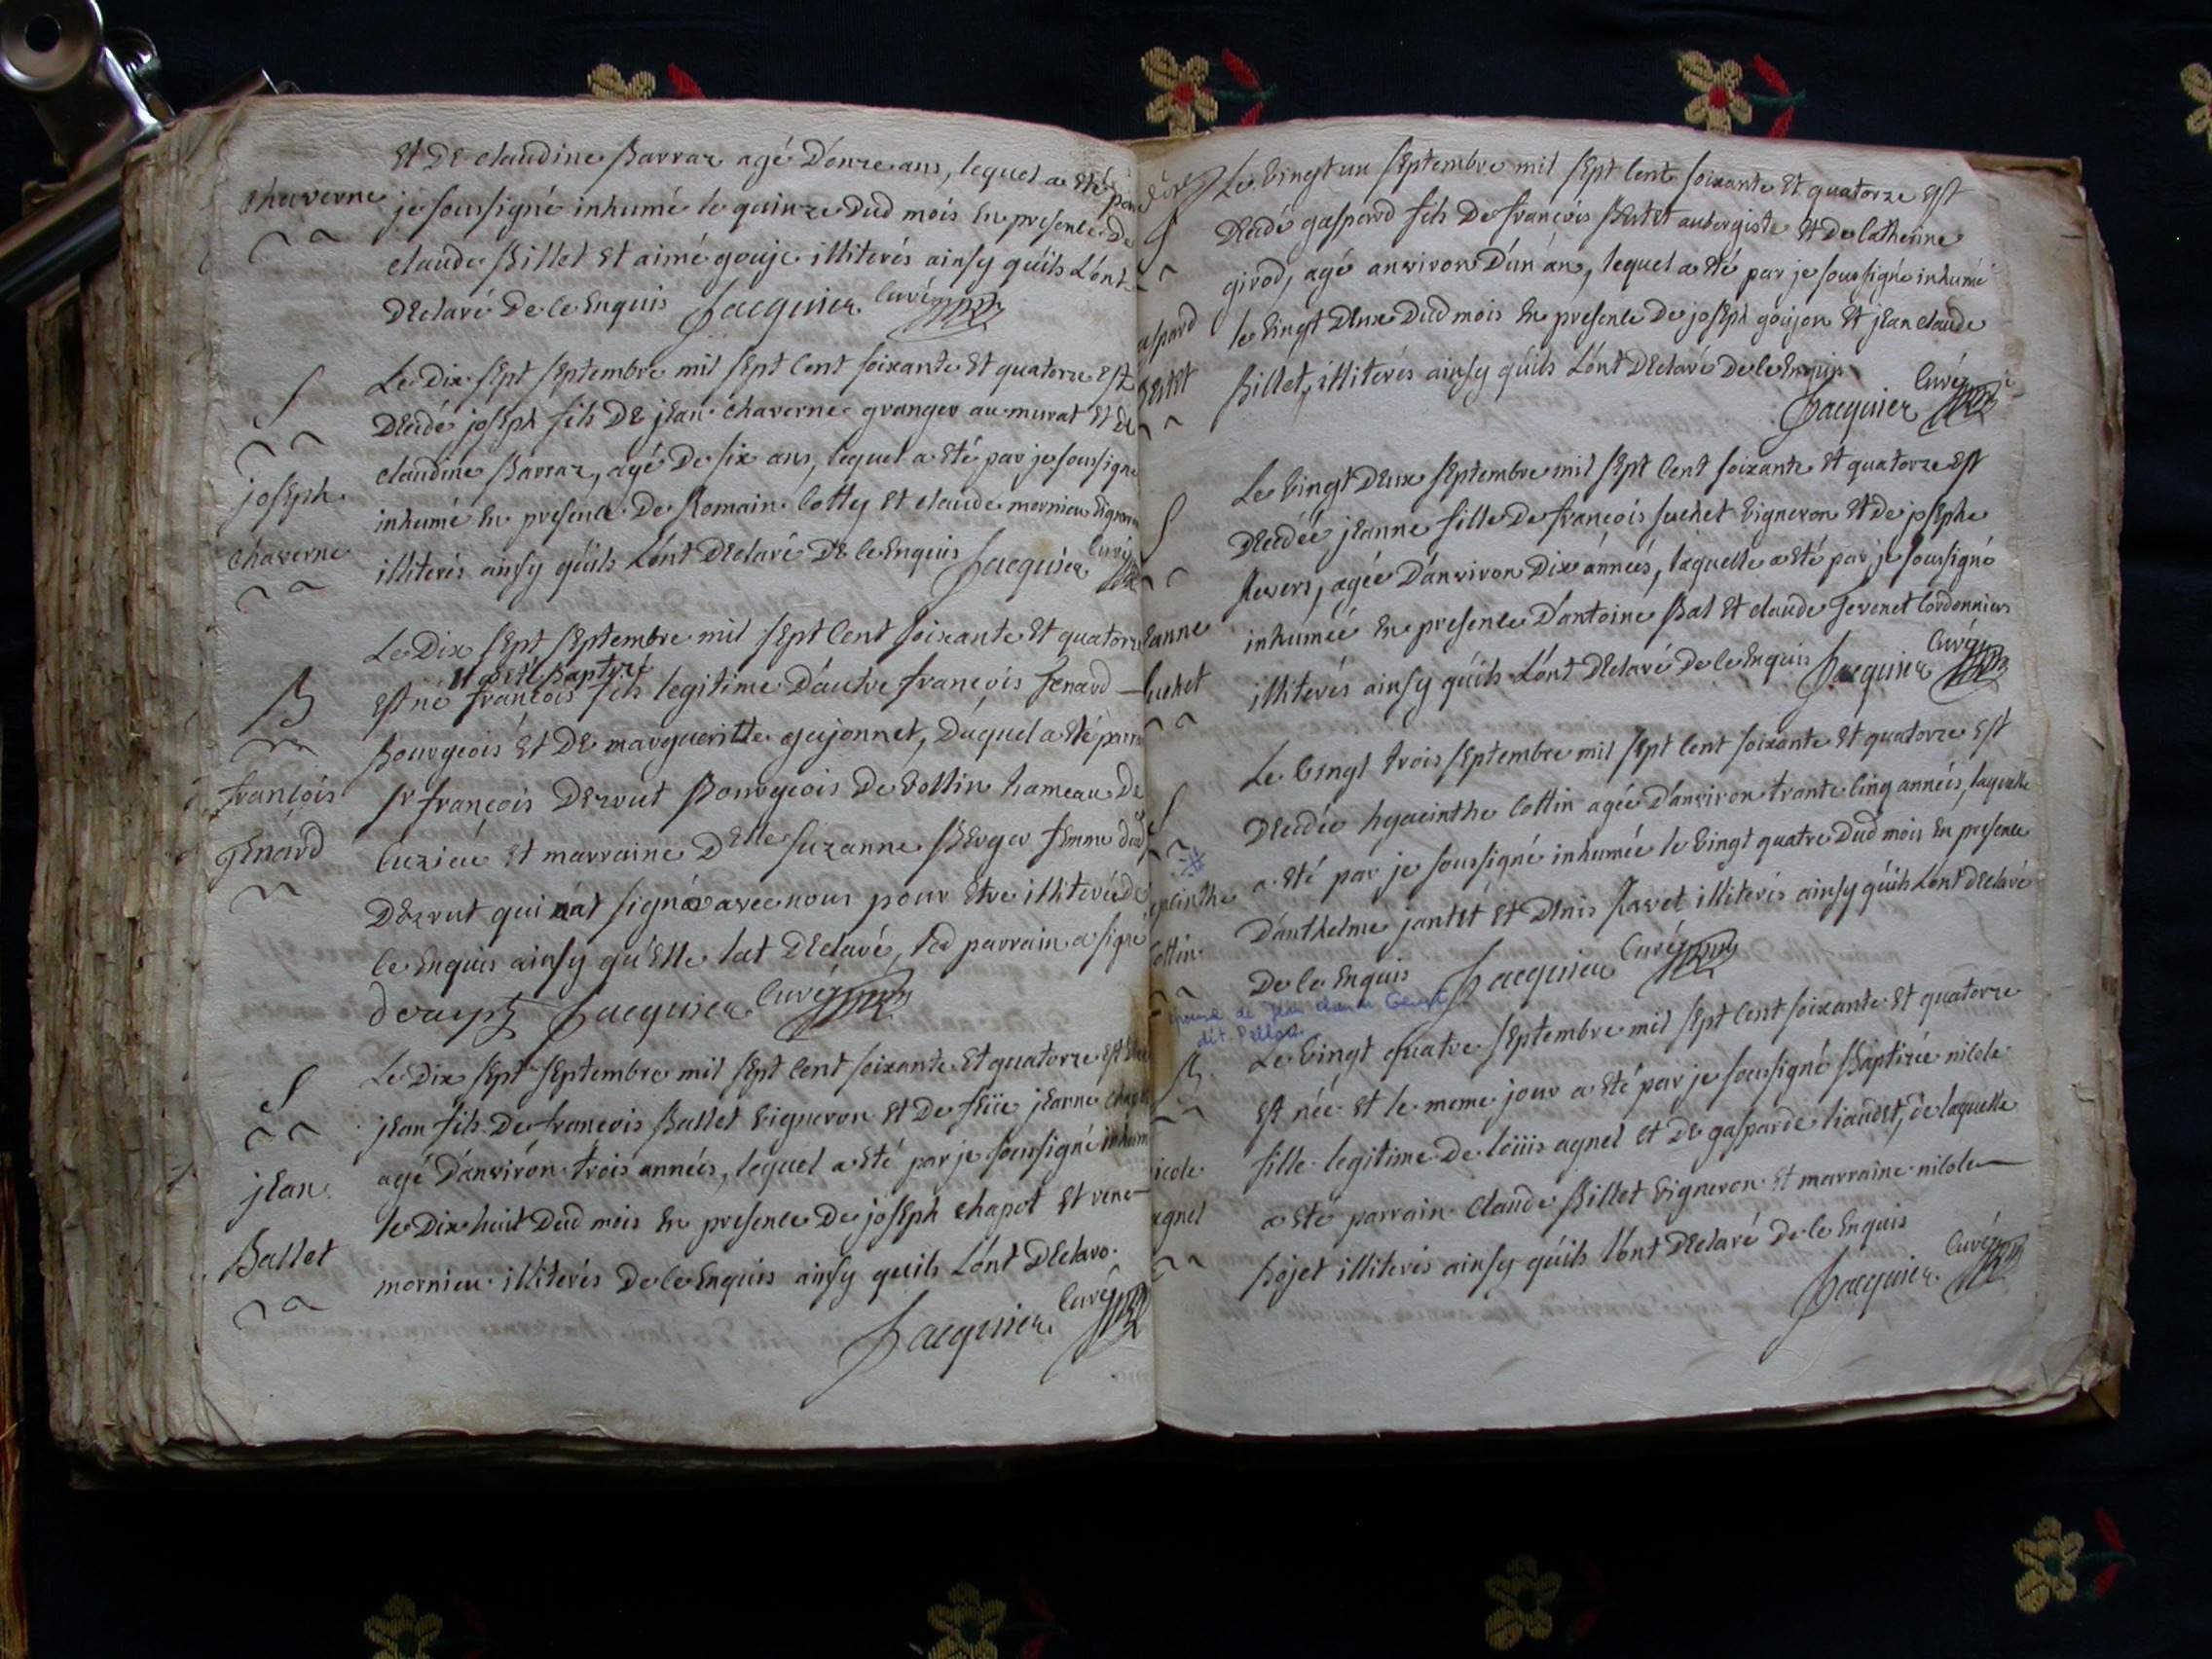 Et De claudine Barraz agé D'onze ans, lequel a Eté par
chaverne
je soussigné inhumé le quinze Dud mois En presence De
claude Billet Et aimé gouje illiterés ainsy qu'ils L'ont
Declaré De ce Enquis Jacquier Curé
S
joseph
chaverne
Le Dix sept septembre mil sept Cent soixante Et quatorze Est
Decedé joseph fils De jean chaverne granger au murat Et De
claudine Barraz, agé De six ans, lequel a Eté par je soussigné
inhumé En presence De Romain Cotty Et claude mornieu vigneron
illiterés ainsy qu'ils L'ont Declaré De ce Enquis Jacquier Curé
B
françois
Jenard
Le Dix sept septembre mil sept Cent soixante Et quatorze
Et a Eté Baptizé
Est né françois fils legitime D'autre françois Jenard
Bourgeois Et De margueritte gujonnet, Duquel a Eté parrain
Sr françois Dezrut Bourgeois De vollin hameau De
Cuzieu Et marraine Delle suzanne Berger femme dud
Dezrut qui n'at signé avec nous pour Etre illiterée de
ce Enquis ainsy qu'Elle l'at Declaré, led parrain a signé
Jacquier Curé
S
jean
Ballet
Le Dix sept septembre mil sept Cent soixante Et quatorze Est
jean fils De françois Ballet vigneron Et De feüe jeanne
agé D'anviron trois années, lequel a Eté par je soussigné inhumé
le Dix huit Dud mois En presence De joseph chapot Et rene
mornieu illiterés De ce Enquis ainsy qu'ils L'ont Declaré
Jacquier Curé
S
gaspard
Bertet
Le vingt un septembre mil sept Cent soixante Et quatorze Est
Decedé gaspard fils De françois Bertet aubergiste Et De Catherine
girod, agé anviron D'un an, lequel a Eté par je soussigné inhumé
le vingt Deux Dud mois En presence De joseph goujon Et jean claude
Billet, illiterés ainsy qu'ils L'ont Declaré De ce Enquis
Jacquier Curé
S
jeanne
suchet
Le vingt Deux septembre mil sept Cent soixante Et quatorze Est
Decedée jeanne fille De françois suchet vigneron Et De josephe
Revers, agée D'anviron Dix années, laquelle a Eté par je soussigné
inhumée En presence D'antoine Bal Et claude Tevenet Cordonniers
illiterés ainsy qu'ils L'ont Declaré De ce Enquis Jacquier Curé
S
hyacinthe
Cottin
Le vingt trois septembre mil sept Cent soixante Et quatorze Est
Decedée hyacinthe Cottin agée D'anviron trante Cinq années, laquelle
a Eté par je soussigné inhumée le vingt quatre Dud mois En presence
D'anthelme jantet Et Denis Ravet illiterés ainsy qu'ils L'ont declaré
De ce Enquis Jacquier Curé
épouse de Jean Claude
dit Pellaz
B
nicole
agnel
Le vingt quatre septembre mil sept Cent soixante Et quatorze
Est née Et le meme jour a Eté par je soussigné Baptizée nicole
fille legitime De loüis agnel Et De gasparde liaudet, De laquelle
a Eté parrain Claude Billet vigneron Et marraine nicole
Bojet illiterés ainsy qu'ils l'ont Declaré De ce Enquis
Jacquier Curé